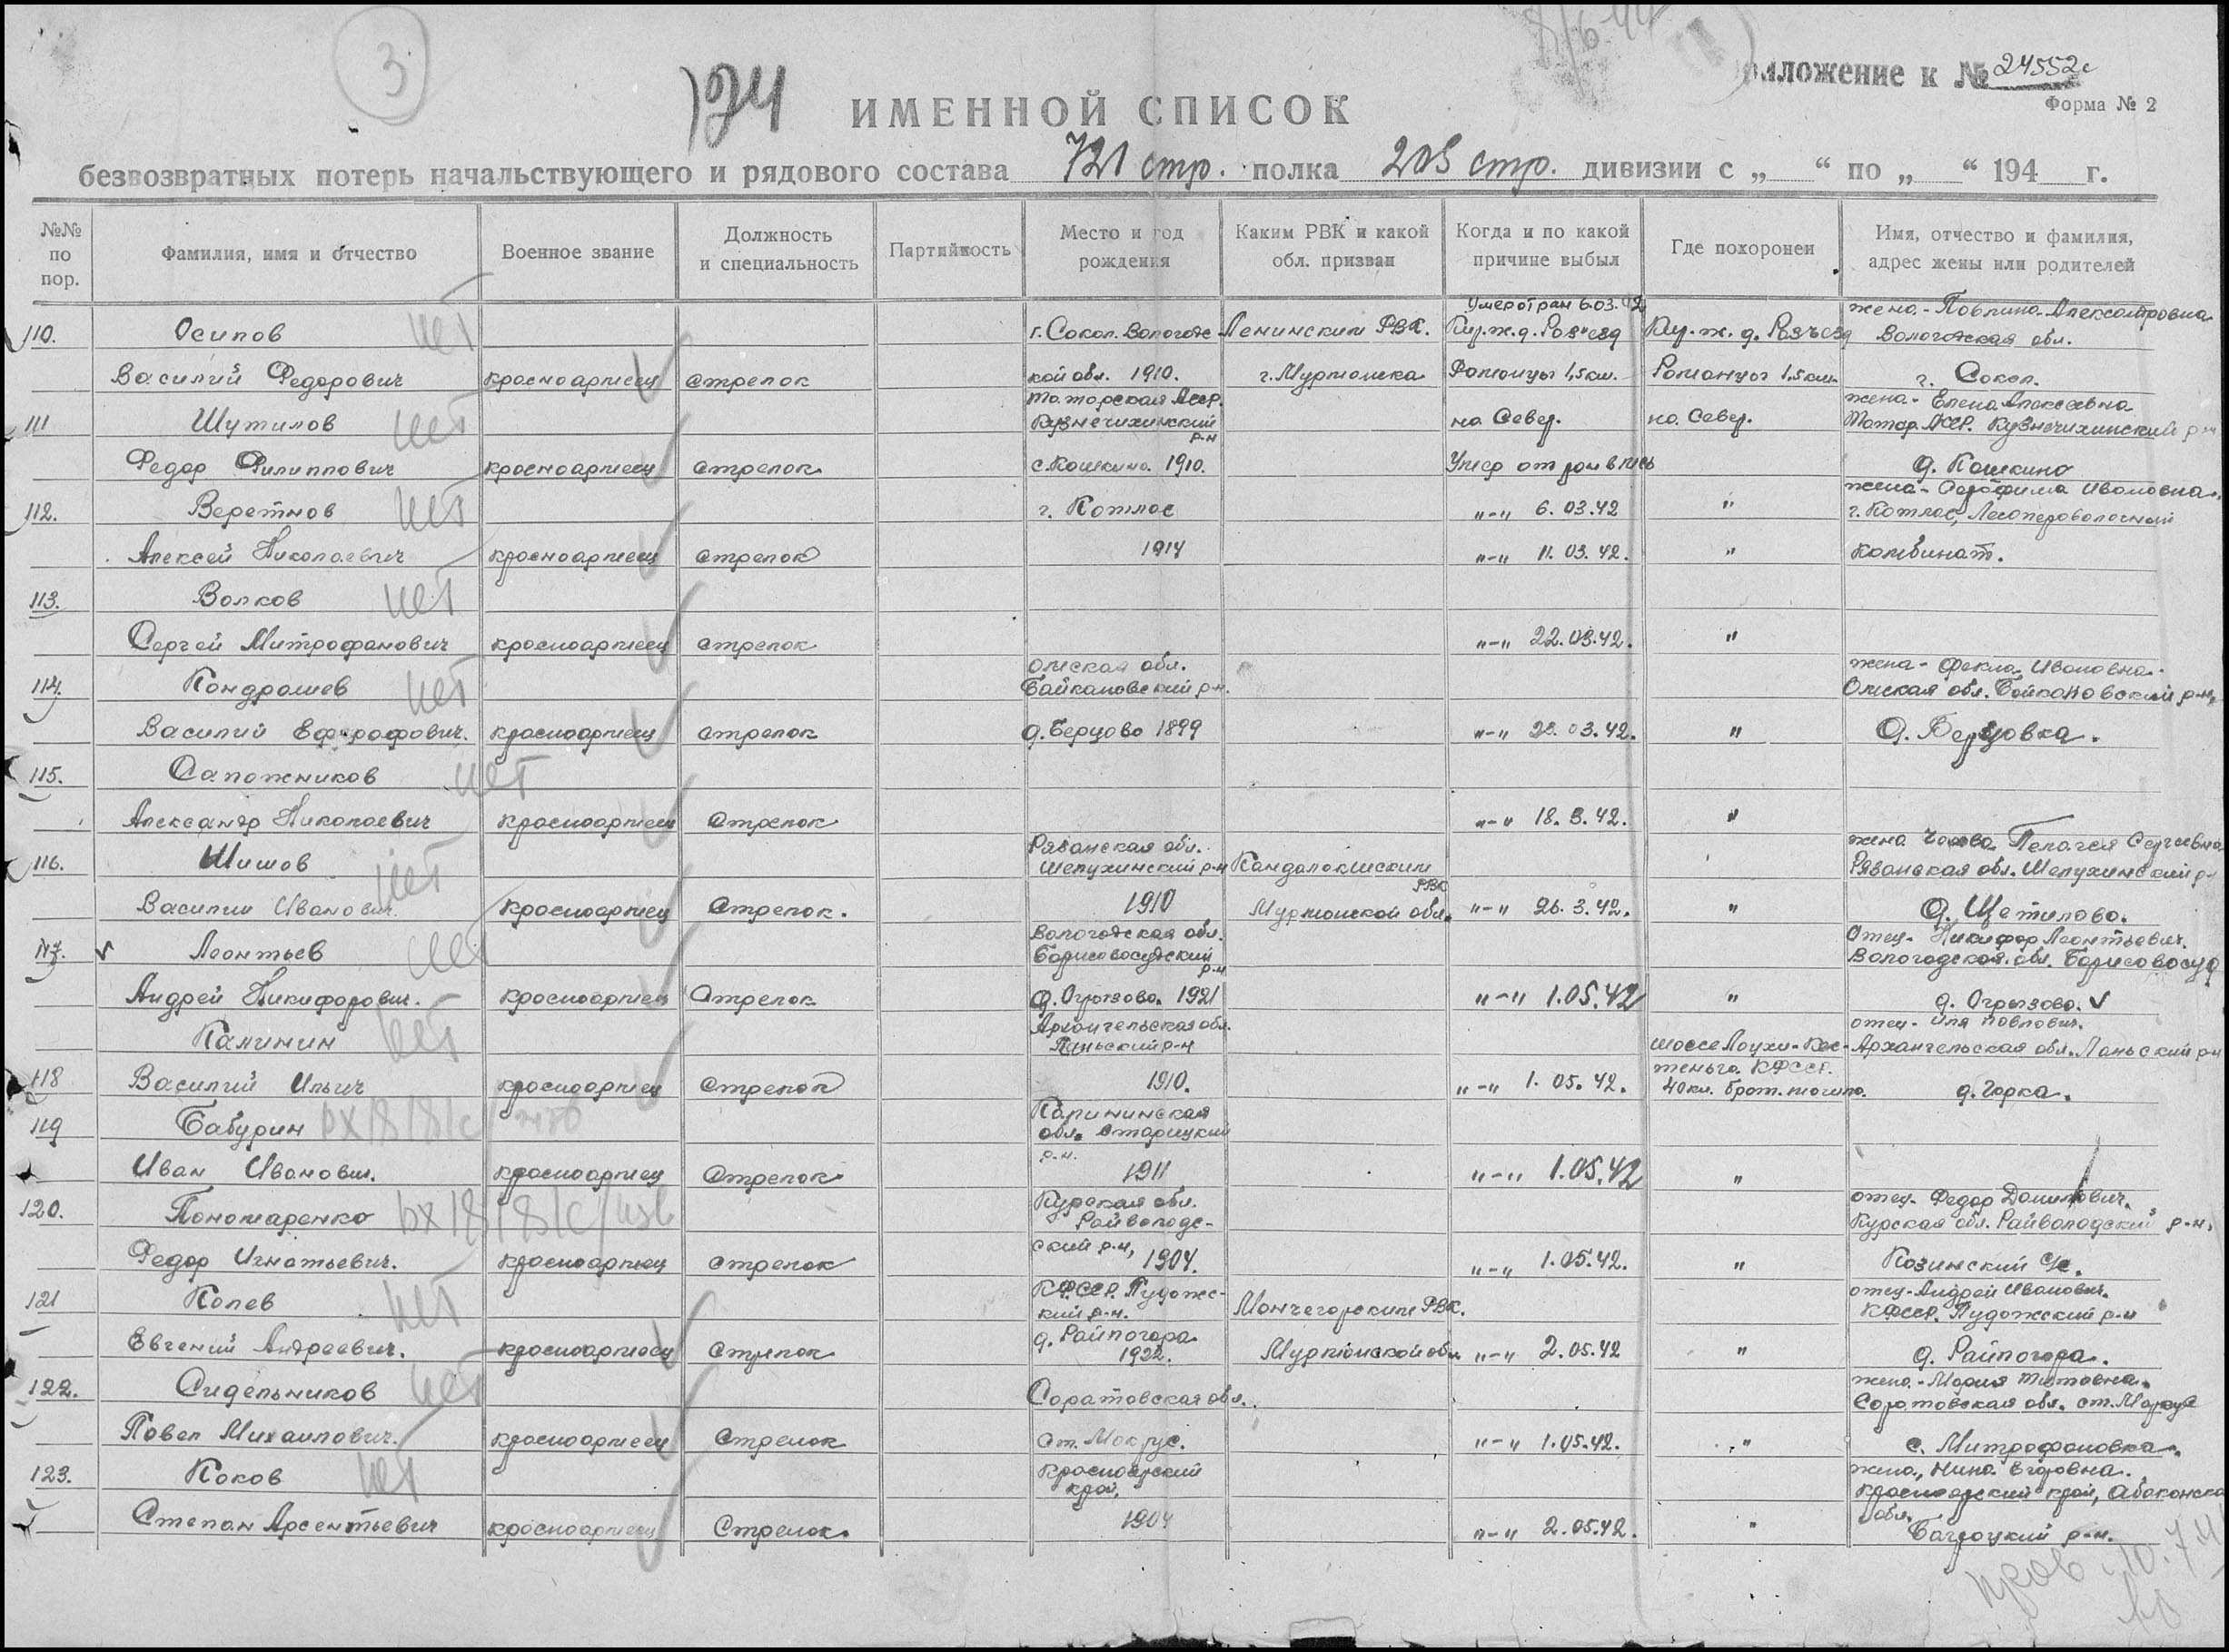 3
8/6-44
Приложение к № 24552с
Форма № 2
ИМЕННОЙ СПИСОК
безвозвратных потерь начальствующего и рядового состава 721 стр. полка 205 стр. дивизии с „ “ по „ “ 194 г.
№№ по пор.
Фамилия, имя и отчество
Военное звание
Должность и специальность
Партийность
Место и год рождения
Каким РВК и какой обл. призван
Когда и по какой причине выбыл
Где похоронен
Имя, отчество и фамилия, адрес жены или родителей
Умер от ран 6.03.42 жена - Павлина Александровна
110. Осипов нет г. Сокол. Вологодс- Ленинским РВК. Кир. ж. д. Разъезд Кир. ж. д. Разъезд Вологодская обл.
Василий Федорович красноармеец стрелок кой обл. 1910. г. Мурманска Полонцы 1,5 км. Полонцы 1,5 км. г. Сокол.
Татарская АССР. жена - Елена Алексеевна
111 Шутилов нет Кузнечихинский р-н на Север. на Север. Татар. АССР. Кузнечихинский р-н
Федор Филиппович красноармеец стрелок с. Кошкино 1910. Умер от ран д. Кошкино
жена - Серафима Ивановна.
112. Веретнов нет г. Котлас "-" 6.03.42 " г. Котлас, Лесоперевалочный
Алексей Николаевич красноармеец стрелок 1914 "-" 11.03.42. " комбинат.
113. Волков нет
Сергей Митрофанович красноармеец стрелок "-" 22.03.42. "
Омская обл. жена - Фекла Ивановна.
114. Кондрашев нет Байкаловский р-н. Омская обл. Байкаловский р-н,
Василий Ефграфович. красноармеец стрелок д. Берцово 1899 "-" 23.03.42. " д. Берцовка.
115. Сапожников нет
Александр Николаевич красноармеец Стрелок "-" 18.3.42. "
Рязанская обл. жена Пелагея Сергеевна
116. Шишов нет Шелухинский р-н Кандалокшским РВК Рязанская обл. Шелухинский р-
Василии Иванович. Красноармеец Стрелок. 1910 Мурманской обл. "-" 26.3.42. " д. Щетилово.
Вологодская обл. Отец - Никифор Леонтьевич.
117. Леонтьев нет Борисовосудский р-н Вологодская обл. Борисовосуд
Андрей Никифорович. красноармеец Стрелок д. Огрызово. 1921 "-" 1.05.42 " д. Огрызово.
Архангельская обл. отец - Иля Павлович.
Калинин нет р-н шоссе Лоухи-Кес- Архангельская обл. р-н
теньга. КФССР.
118 Василий Ильич красноармеец Стрелок 1910. "-" 1.05.42. 40 км. брат. могила. д. Горка.
119 Бабурин вх Калининская обл. Старицкий
Иван Иванович. красноармеец Стрелок р-н. 1911 "-" 1.05.42 "
Курская обл. отец - Федор
120. Пономаренко вх Райволодс- Курская обл. Райволодский р-н.
Федор Игнатьевич. красноармеец стрелок ский р-н, 1904. "-" 1.05.42. " Козинский с/с.
КФССР. Пудожс- отец - Андрей Иванович.
121 Копев нет кий р-н. Мончегорским РВК. КФССР. Пудожский р-н
Евгений Андреевич. красноармеец Стрелок д. Райпогора 1922. Мурманской обл. "-" 2.05.42 " д. Райпогора.
жена - Мария Титовна.
122. Сидельников нет Саратовская обл. Саратовская обл. ст. Мокрус
Павел Михаилович. красноармеец Стрелок Ст. Мокрус. "-" 1.05.42. " с. Митрофановка.
Красноярский жена, Нина Егоровна.
123. Коков нет край. Красноярский край, Абаканска
Степан Арсентьевич красноармеец Стрелок. 1904 "-" 2.05.42. " обл. р-н.